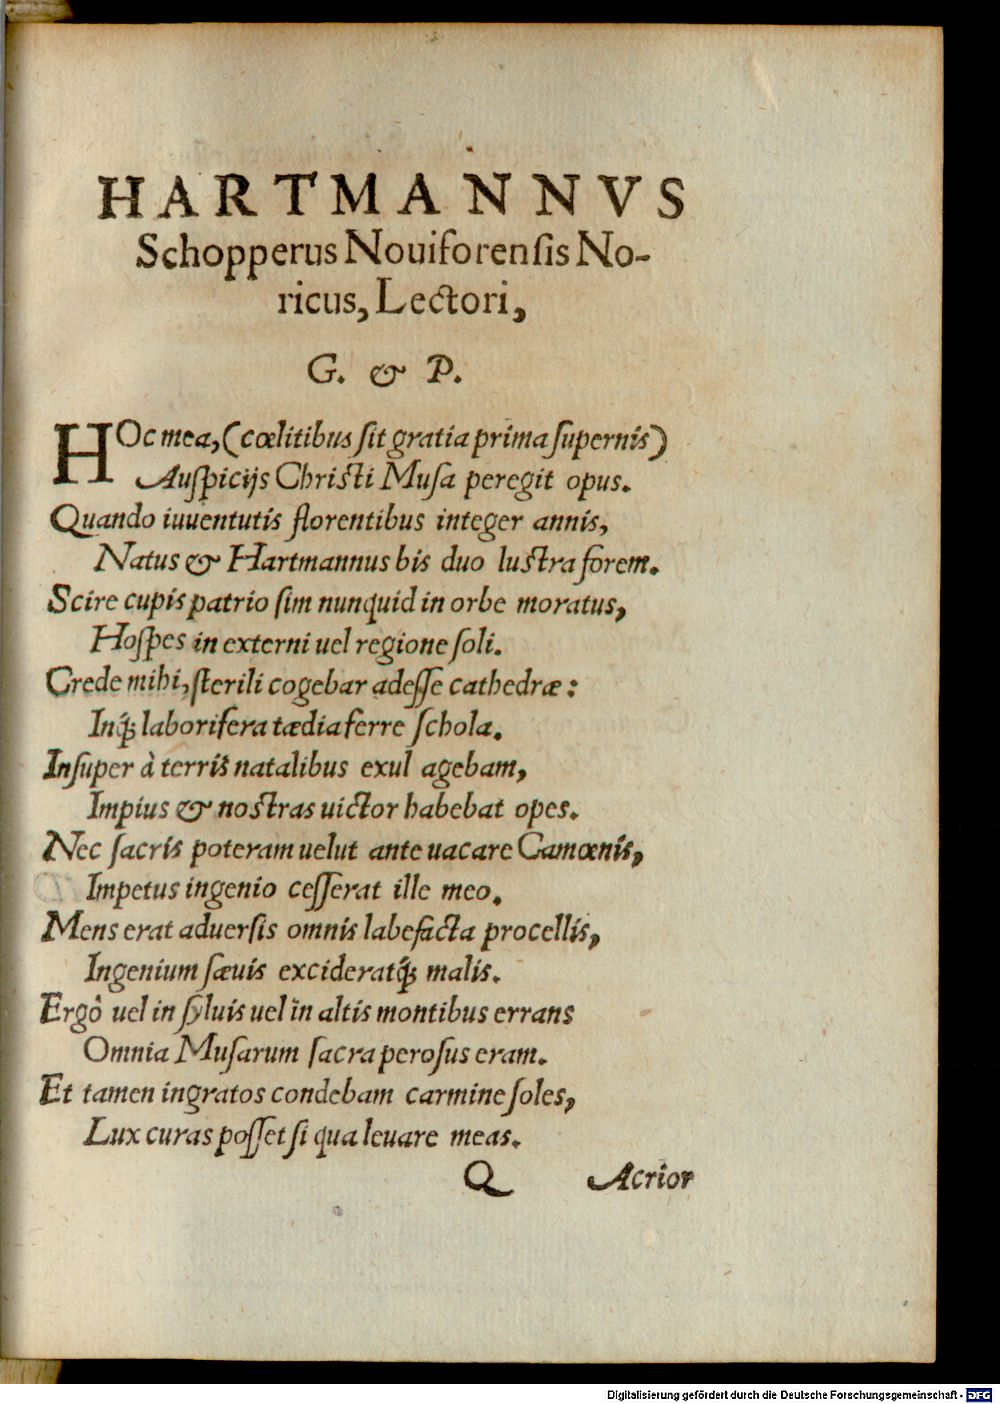 HARTMANNVS
Schopperus Nouiforenſis No-
ricus, Lectori,
G. & P.
HOc mea, (cœlitibus ſit gratia prima ſupernis)
Auſpicijs Chriſti Muſa peregit opus.
Quando iuuentutis florentibus integer annis,
Natus & Hartmannus bis duo luſtra forem.
Scire cupis patrio ſim nunquid in orbe moratus,
Hoſpes in externi uel regione ſoli.
Crede mihi, ſterili cogebar adeſſe cathedræ:
Inq́; laborifera tædia ferre ſchola.
Inſuper à terris natalibus exul agebam,
Impius & noſtras uictor habebat opes.
Nec ſacris poteram uelut ante uacare Camœnis,
Impetus ingenio ceſſerat ille meo.
Mens erat aduerſis omnis labefacta procellis,
Ingenium ſæuis excideratq́; malis.
Ergô uel in ſyluis uel in altis montibus errans
Omnia Muſarum ſacra peroſus eram.
Et tamen ingratos condebam carmine ſoles,
Lux curas poſſet ſi qua leuare meas.
Q Acrior
Digitalisierung gefördert durch die Deutsche Forschungsgemeinschaft - DFG